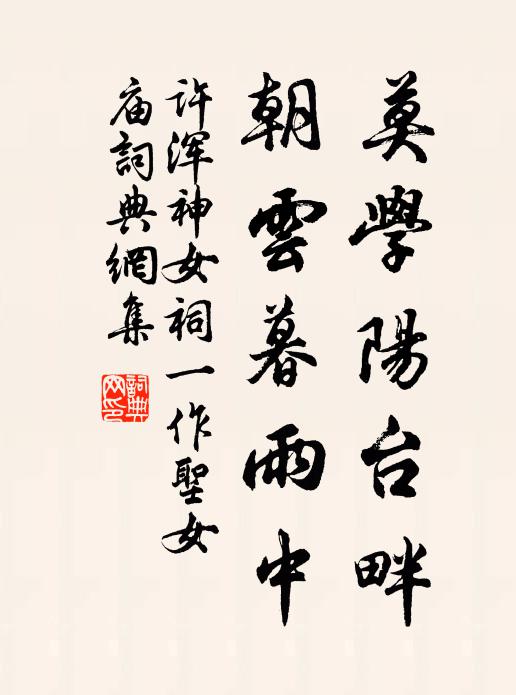 莫學陽台畔
朝雲暮雨中
许浑神女祠一作聖女
庙詞典網集
詞典
网印